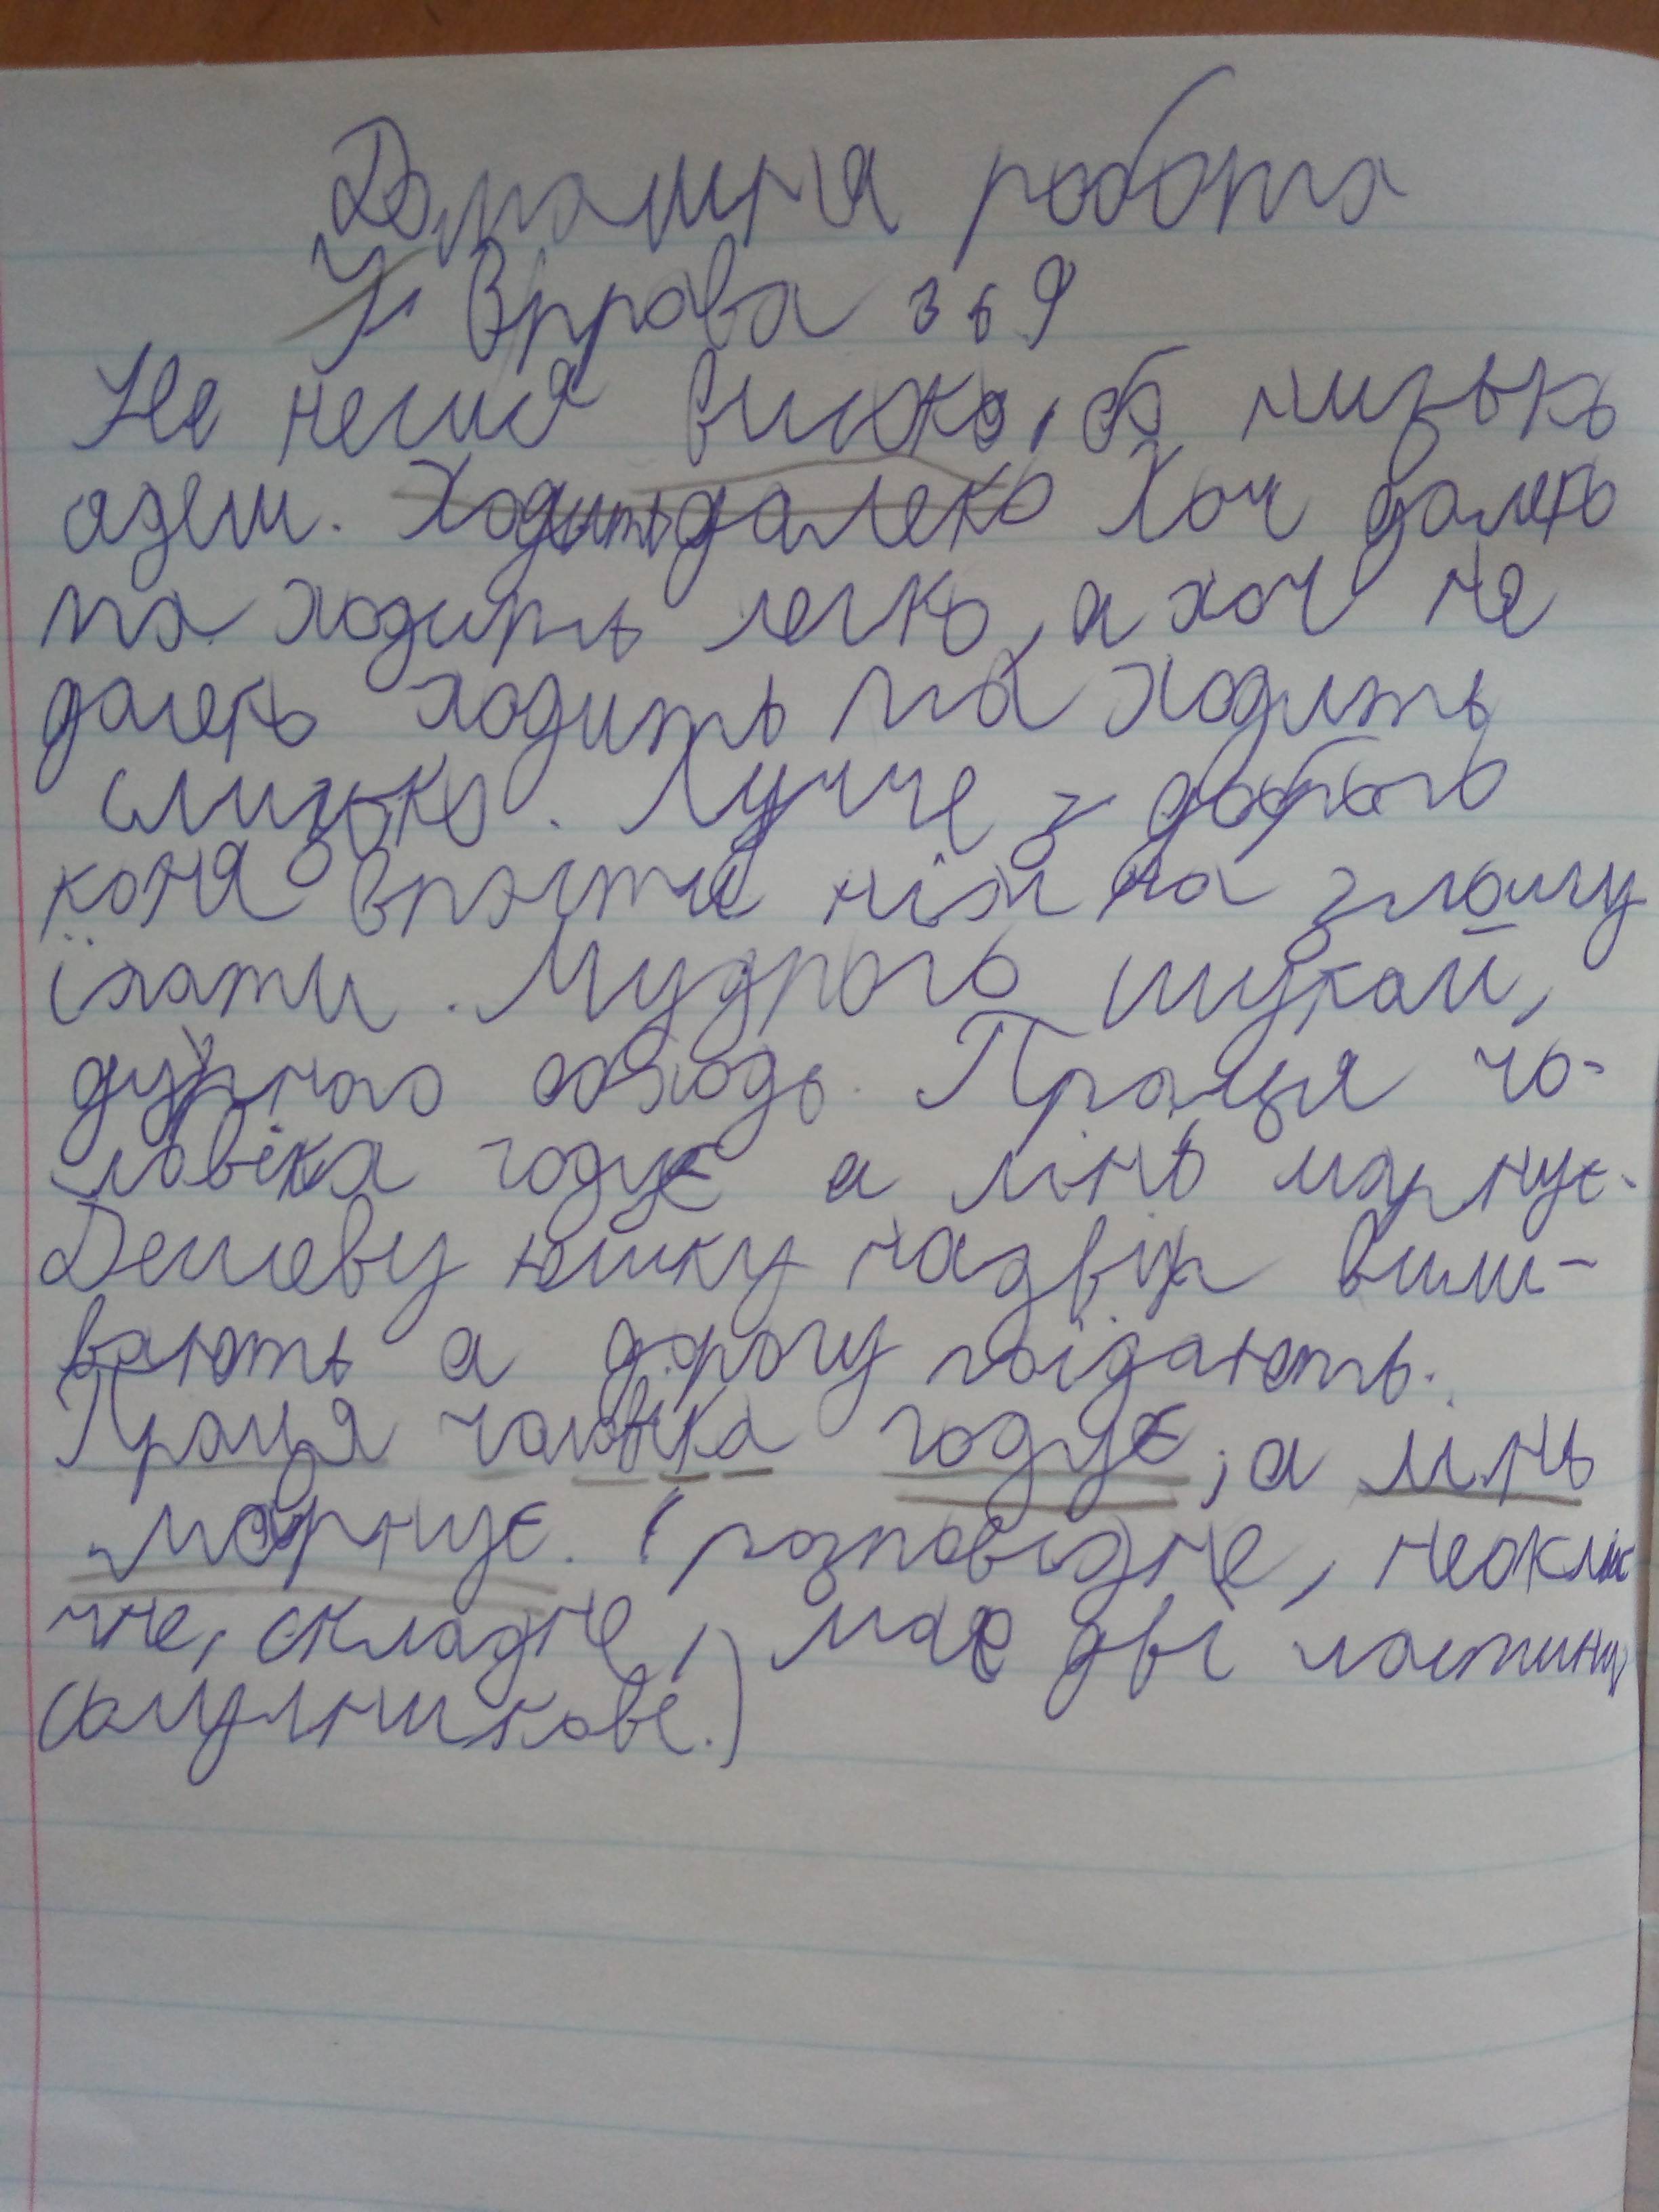 Домашня робота
Вррава 369
Не неси високо, об низько
ядеш. Ходить далеко Хоч далеко
та ходить легко, а хоч не
далеко ходить та ходить
слизько. Лучче з доброго
коня впасти ніж на злому
їхати. Мудрого шукай,
дурного обходь. Праця чо-
ловіка годує а лінь марнує.
Дешеву юшку надвір вили-
вають а дорогу поїдають.
Праця чоловіка годує, а лінь
марнує. (розповідне, неокли
чне, складне, має дві частини
)